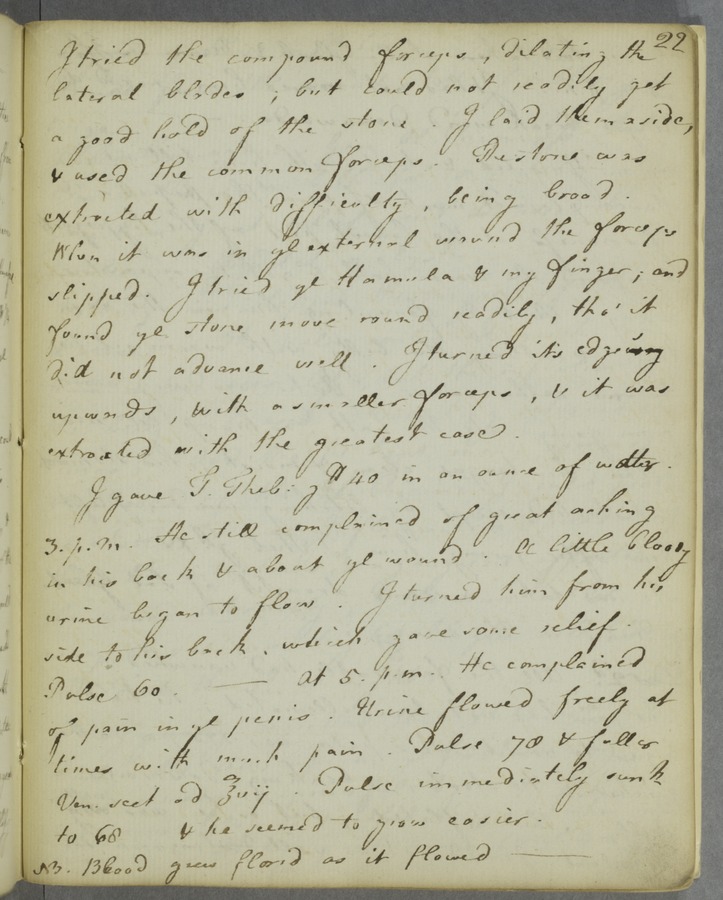 22
I tried the compound forceps, dilating the
lateral blades; but could not readily get
a good hold of the stone. I laid them aside,
& used the common forceps. The stone was
extracted with difficulty, being broad.
When it was in ye external wound the forceps
slipped. I tried ye Hamula & my finger; and
found ye stone move round readily, tho' it
did not advance well. I turned its edge
upwards, with a smaller forceps, & it was
extracted with the greatest ease.
I gave T. Theb: gtt 40 in an ounce of water.
3. p.m. He still complained of great aching
in his back & about ye wound. A little bloody
urine began to flow. I turned him from his
side to his back, which gave some relief.
Pulse 60. — At 5. p.m. He complained
of pain in ye penis. Urine flowed freely at
times with much pain. Pulse 78 & fuller
Ven. sect ad ℥vij. Pulse immediately sunk
to 68 & he seemed to grow easier.
NB. Blood grew florid as it flowed —